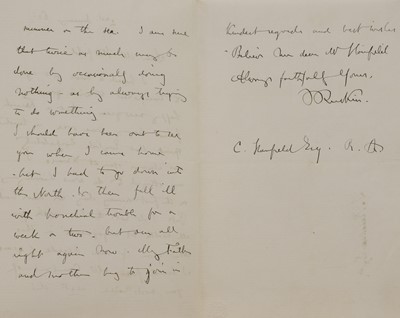 on the sea. I am sure
that twice as much may be
done by occasionally doing
nothing - as by always trying
to do something.
I should have been out to see
you when I came home
- but I had to go down into
the North. & then fell ill
with bronchial trouble for a
week or two. but am all
right again now. My father
and mother beg to join in
kindest regards and best wishes
Believe me dear Mr Stanfield
Always faithfully Yours.
J Ruskin.
C. Stanfield Esq. R. A.